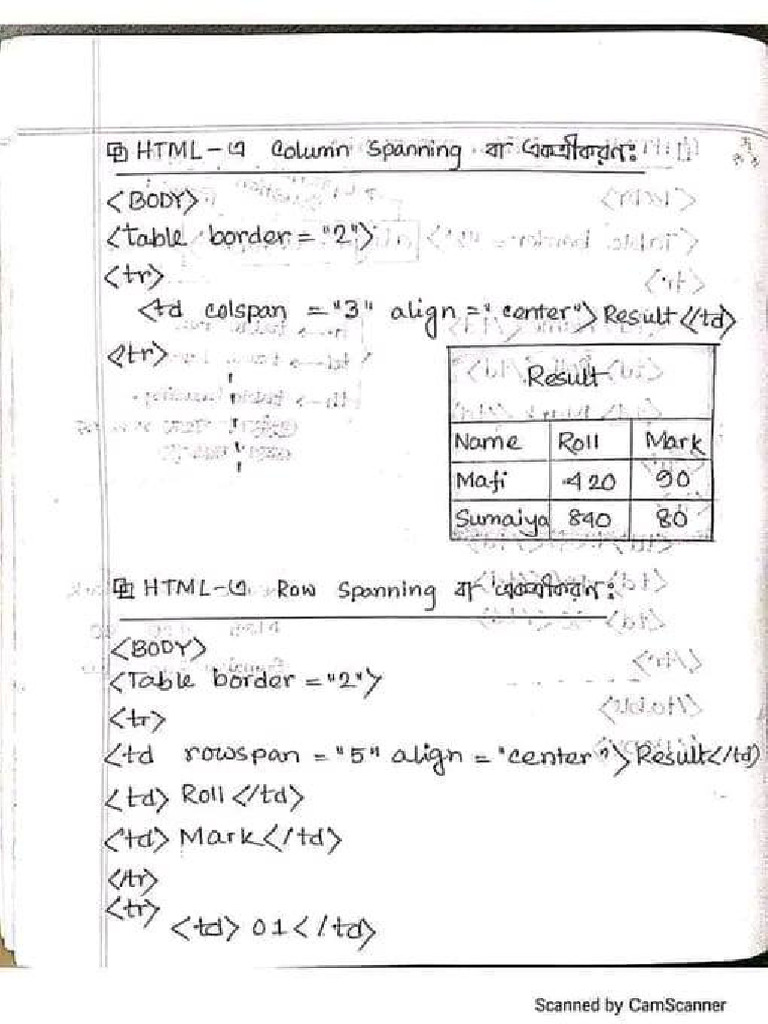 HTML-এ Column Spanning বা একত্রীকরণ:
<BODY>
<table border = "2">
<tr>
<td colspan = "3" align = "center"> Result </td>
<tr>
Result
Name Roll Mark
Mafi 420 90
Sumaiya 840 80
HTML-এ Row Spanning বা একত্রীকরণ:
<BODY>
<Table border = "2">
<tr>
<td rowspan = "5" align = "center"> Result </td>
<td> Roll </td>
<td> Mark </td>
</tr>
<tr>
<td> 01 </td>
Scanned by CamScanner